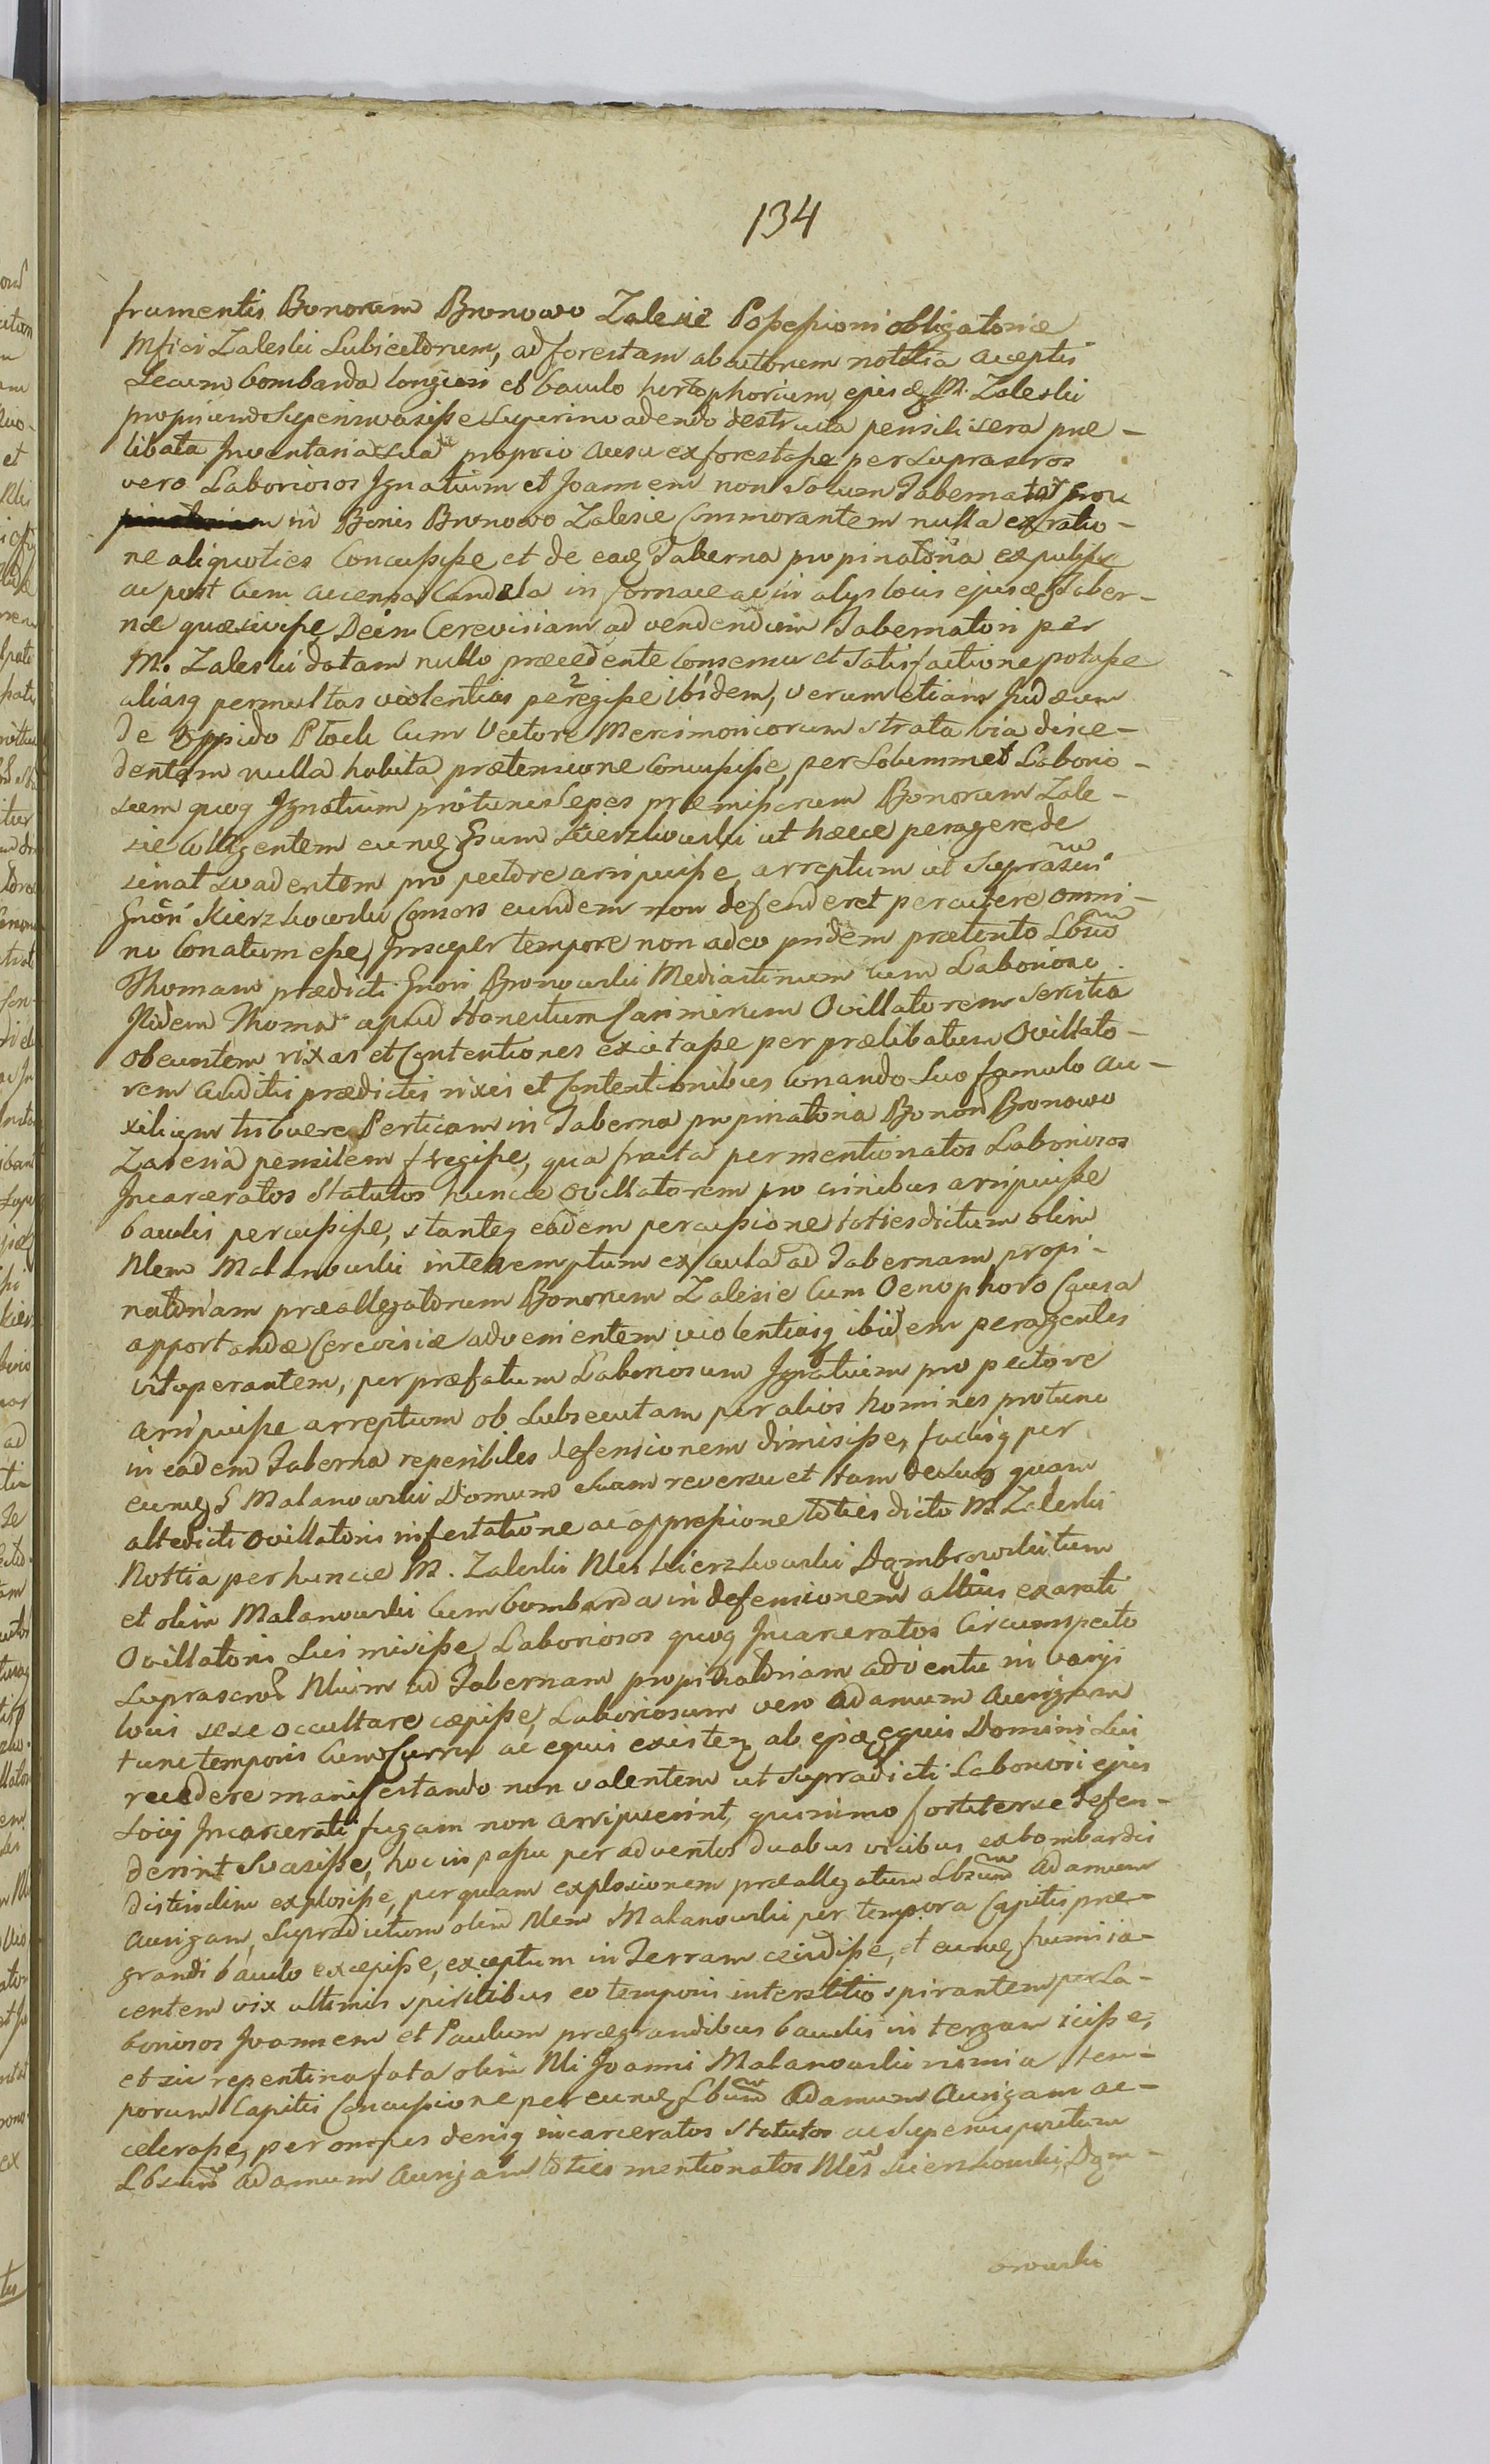 134
frumentis Bonorum Bronowo Zalesie Possessioni obligatoriæ
Mfici Zaleski Subiectorum, ad forestam abactorum notitia acceptis
secum bombarda longiori et baculo hortophorium ejusdq M. Zaleski
propriund Superinvasisse Superinvadendo destructa pensili sera præ-
libata Inventaria sua proprio ausu exforestasse per Suprascros
vero Laboriosos Ignatium et Joannem non solum Tabernatorem
in Bonis Bronowo Zalesie Commorantem nulla ex ratio-
ne aliquoties Concussisse et de eadq Taberna propinatoria expulisse
ac post Cum accensa Candela in fornace ac in alys locis ejusdq Taber-
næ quæsivisse Dein Cerevisiam ad vendendum Tabernatori per
M. Zaleski datam nullo præcedente Consensu et satisfactione potasse
aliasq permultas violentias peregisse ibidem, verum etiam Judæum
de Oppido Płock Cum Vectore Mercimoniorum strata via disce-
dentem nulla habita prætensione Concussisse, per Solummet Laborio-
sum quoq Ignatium protunc Sepes præmissorum Bonorum Zale-
sie Colligentem eundq Gsum Kierzkowski ut hæcce peragere de
sinat suadentem pro pectore arripuisse, arreptum ut Suprascri
Gnori Kierzkowski Consors eundem non defenderet percutere omni-
no Conatum esse, Insuper tempore non adeo pridem prætento Lbsum
Thomam prædicti Gnori Bronowski Mediastinum Cum Laborioso
Itidem Thoma apud Honestum Casimirum Ovillatorem servitia
obeuntem rixas et Contentiones excitasse per prælibatum Ovillato-
rem auditis prædictis rixis et Contentionibus Conando suo famulo au-
xilium tribuere Perticam in Taberna propinatoria Bonorum Bronowo
Zalesia pensilem fregisse, qua fracta per mentionatos Laboriosos
Incarceratos Statutos huncce Ovillatorem pro crinibus arripuisse
baculis percussisse, stanteq eadem percussione toties dictum olim
Nlem Malanowski interemptum ex aula ad Tabernam propi-
natoriam præallegatorum Bonorum Zalesie Cum Oenophoro Causa
apportandæ Cerevisiæ advenientem violentiasq ibidem peragentes
vituperantem, per præfatum Laboriosum Ignatium pro pectore
arripuisse arreptum ob Subsecutam per alios homines protunc
in eadem Taberna reperibiles defensionem dimisisse, factisq per
eundq G Malanowski Domum suam reversu et tam de sua quam
altedicti Ovillatoris infestatione ac oppressione toties dicto M. Zaleski
Notitia per huncce M. Zaleski Nles Kierzkowski Dąmbrowski tum
et olim Malanowski Cum bombarda in defensionem altius exarati
Ovillatoris Sui misisse, Laboriosos quoq Incarceratos Circumspecto
Suprascro Nlium ad Tabernam propinatoriam adventu in varys
locis sese occultare cæpisse, Laboriosum vero Adamum Aurigam
tunc temporis Cum Curru ac equis existen, ab ejsdq equis Domini Sui
recedere manifestando non valentem ut Supradicti Laboriosi ejus
Socij Incarcerati fugam non arripuerint, quinimo fortiter se defen-
derint Suasisse, hoc in passu per adventos duabus vicibus ex bombardis
distinctim explosisse, per quam explosionem præallegatum Lbsum Adamum
Aurigam, Supradictum olim Nlem Malanowski per tempora Capitis præ-
grandi baculo excepisse, exceptum in Terram cecidisse, et eundq humi ia-
centem vix ultimis spiritibus eo temporis interstitio spirantem per La-
boriosos Joannem et Paulum prægrandibus baculis in tergam icisse,
et sic repentina fata olim Nli Joanni Malanowski nimia tem-
porum Capitis Concussione per eundq Lbsum Adamum Aurigam ac-
celerasse, per omnes deniq incarceratos Statutos ac Superius paritum
Lbsum Adamum Aurigam toties mentionatos Nles Kierzkowski, Dąm-
browski